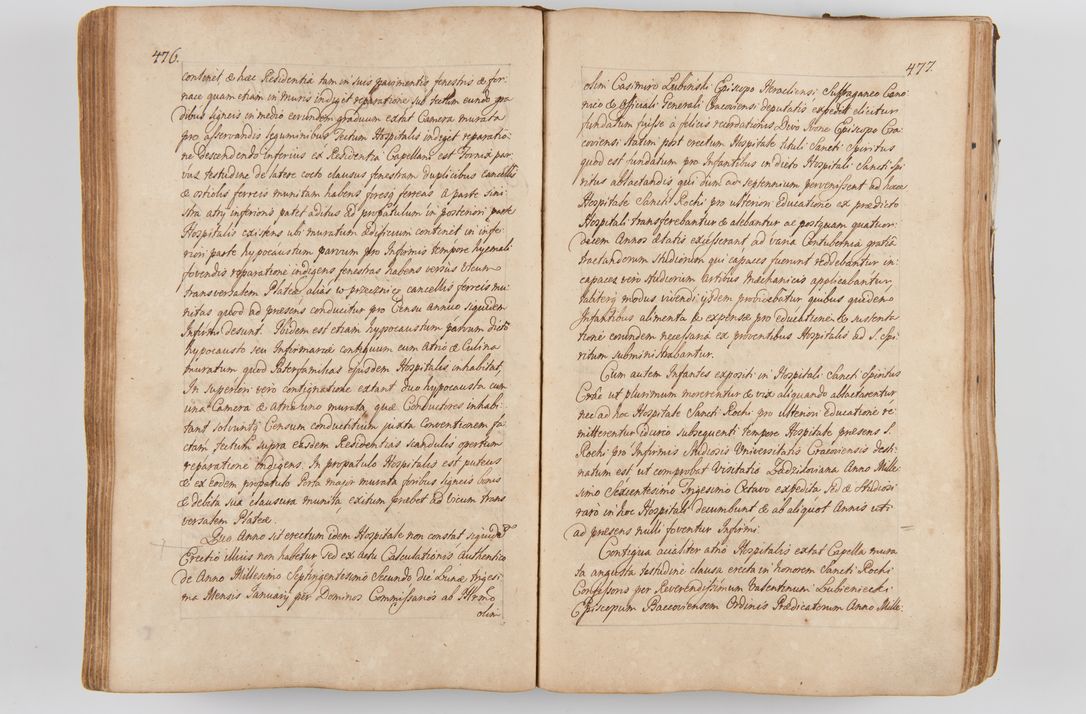 476.
continet & hæc Residentia tam in suis pavimentis, fenestris & for:
nace quam etiam in muris indiget reparatione sub tectum eundo gra
dibus ligneis in medio eorundem graduum extat Camera murata
pro asservandis leguminibus Tectum Hospitalis indiget reparatio:
ne Descendendo inferius ex Residentia Capellani est Fornix par
vus testudine de latere cocto clausus fenestram duplicibus cancellis
& ostiolis ferreis munitam habens foresq ferreas A parte sini:
stra atrij inferioris patet aditus ad propatulum in posteriori parte
Hospitalis existens ubi muratum Ædificium continet in infe:
riori parte hypocaustum parvum pro Infirmis tempore hyemali
fovendis reparatione indigens fenestras habens versus Vicum
transversalem Plateæ alias w przecznicę cancellis ferreis mu:
nitas quod ad præsens conducitur pro Censu annuo siquidem
Infirmi desunt. Ibidem est etiam hypocaustum parvum dicto
hypocausto seu Infirmariæ contiguum cum Atrio & Culina
muratum quod Paterfamilias ejusdem Hospitalis inhabitat,
In superiori vero contignatione extant duo hypocausta cum
una Camera & Atrio uno murata, quæ Conductores inhabi:
tant solvuntq Censum conductitium juxta Conventionem fa:
ctam tectum supra easdem Residentias scandulis opertum
reparatione indigens. In propatulo Hospitalis est puteus
& ex eodem propatulo Porta major murata foribus ligneis bonis
& debita sua clausura munita, exitum præbet ad Vicum trans
versalem Plateæ.
Quo Anno sit erectum idem Hospitale non constat siquidem
Erectio illius non habetur sed ex actu Calculationis authentico
de Anno Millesimo Septingentesimo Secundo die Lunæ trigesi
ma Mensis January per Dominos Commissarios ab Illrmo
olim
477.
olim Casimiro Lubinski Episcopo Heracliensi Suffraganeo Cano
nico & Officiali Generali Cracoviensi deputatis expedito elicitur
fundatum fuisse a felicis recordationis Divo Ivone Episcopo Cra
coviensi statim post erectum Hospitale tituli Sancti Spiritus
quod est fundatum pro Infantibus in dicto Hospitali Sancti Spi
ritus ablactandis qui dum ad septennium pervenissent ad hocce
Hospitale Sancti Rochi pro ulteriori Educatione ex prædicto
Hospitali transferebantur & alebantur ac postquam quatuor:
decem Annos ætatis exiesserant ad varia Contubernia gratia
tractandorum studiorum qui capaces fuerunt reddebantur in:
capaces vero studiorum Artibus Mechanicis applicabantur,
aliterq modus vivendi ijsdem providebatur quibus quidem
Infantibus alimenta & expensæ pro educatione & sustenta
tione eorundem necessaria ex proventibus Hospitalis ad S. Spi:
ritum subministrabantur.
Cum autem Infantes expositi in Hospitali Sancti Spiritus
Crcæ ut plurimum morerentur & vix aliquando ablactarentur
nec ad hoc Hospitale Sancti Rochi pro ulteriori Educatione re:
mitterentur idcirco subsequenti tempore Hospitale præsens S.
Rochi pro Infirmis Studiosis Universitatis Cracoviensis desti
natum est ut comprobat Visitatio Zadzikoviana Anno Mille:
simo Sexcentesimo Trigesimo Octavo expedita Sed & Studiosi
raro in hoc Hospitali decumbunt & ab aliquot Annis uti
ad præsens nulli foventur Infirmi.
Contigua aualiter atrio Hospitalis extat Capella mura
ta angusta testudine clausa erecta in honorem Sancti Rochi
Confessoris per Reverendissimum Valentinum Lubieniecki
Episcopum Baccoviensem Ordinis Prædicatorum Anno Mille: